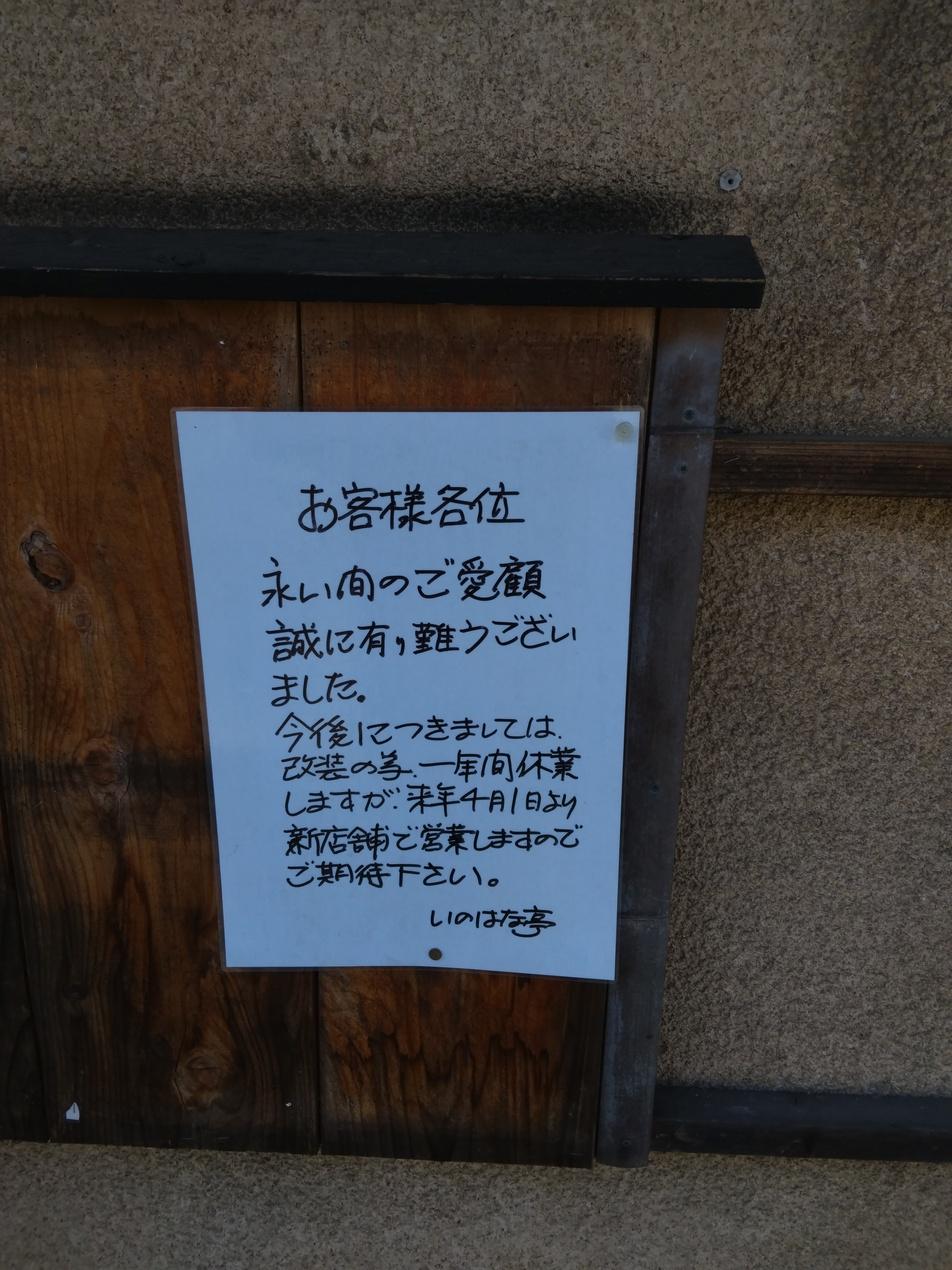 お客様各位
永い間のご愛顧
誠に有り難うござい
ました。
今後につきましては、
改装の為、一年間休業
しますが、来年4月1日より
新店舗で営業しますので
ご期待下さい。
いのはな亭